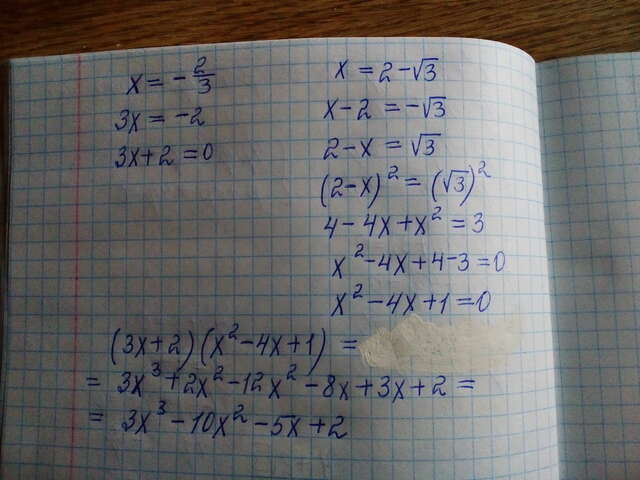 x = -2/3
3x = -2
3x+2 = 0
x = 2-√3
x-2 = -√3
2-x = √3
(2-x)² = (√3)²
4-4x+x² = 3
x²-4x+4-3 = 0
x²-4x+1 = 0
(3x+2)(x²-4x+1) =
= 3x³+2x²-12x²-8x+3x+2 =
= 3x³-10x²-5x+2